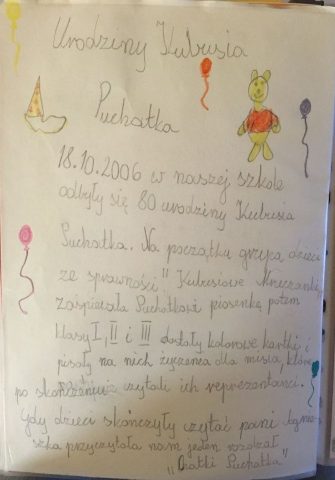 Urodziny Kubusia
Puchatka
18.10.2006 w naszej szkole
odbyły się 80 urodziny Kubusia
Puchatka. Na początku grupa dzieci
ze sprawności "Kubusiowe Mruczanki"
zaśpiewała Puchatkowi piosenkę potem
klasy I, II i III dostały kolorowe kartki i
pisały na nich życzenia dla misia, które
po skończeniu czytali ich reprezentanci.
Gdy dzieci skończyły czytać pani
szka przyczytała nam jeden rozdział
"Chatki Puchatka"